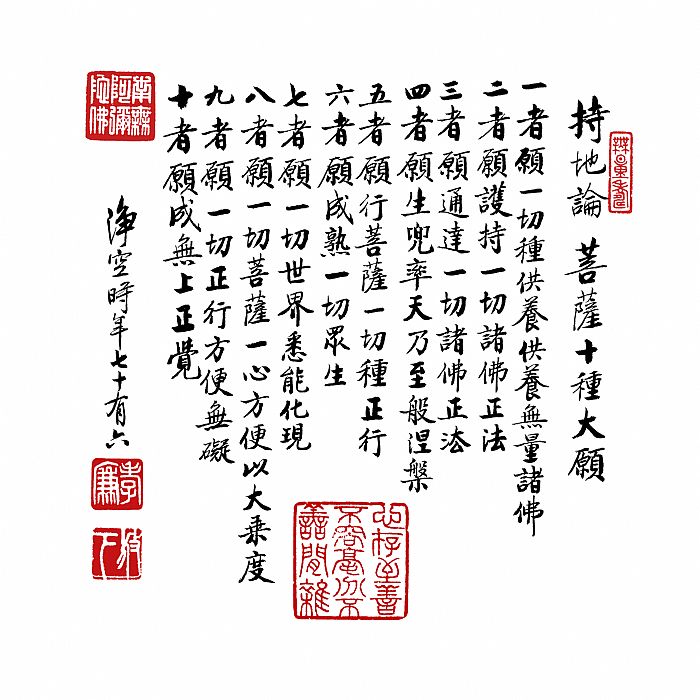 持地論 菩薩十種大願
一者願一切種供養供養無量諸佛
二者願護持一切諸佛正法
三者願通達一切諸佛正法
四者願生兜率天乃至般涅槃
五者願行菩薩一切種正行
六者願成熟一切眾生
七者願一切世界悉能化現
八者願一切菩薩一心方便以大乘度
九者願一切正行方便無礙
十者願成無上正覺
淨空時年七十有六
南無阿彌陀佛
無量壽
孝廉
心存至善不容毫分不善間雜